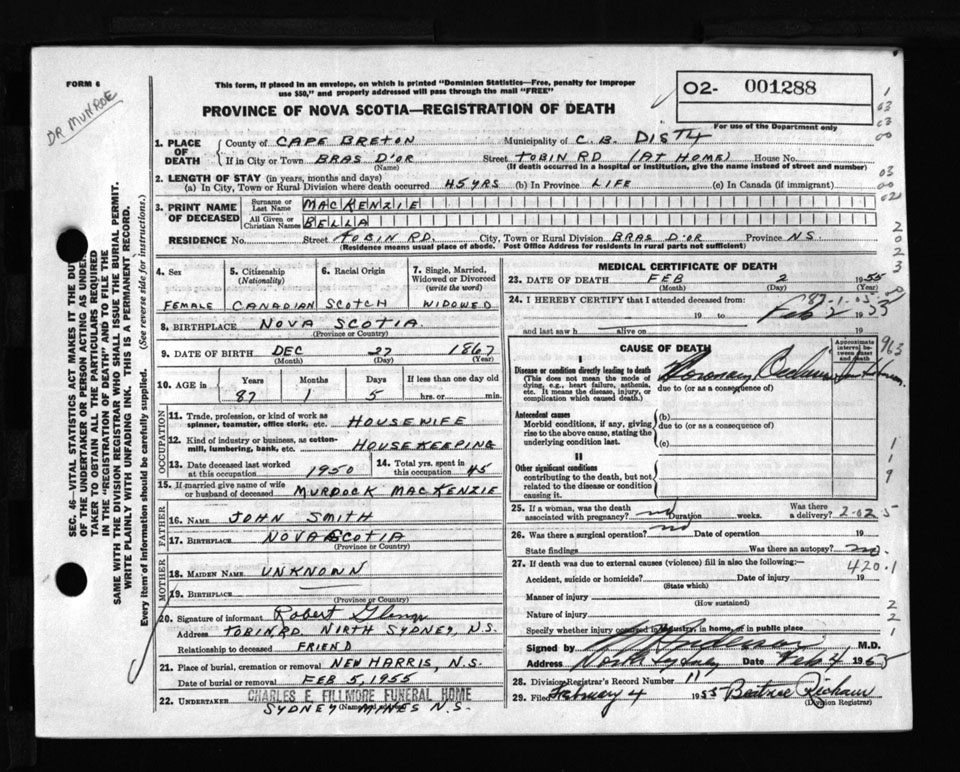 FORM 6
DR MUNROE
This form, if placed in an envelope, on which is printed "Dominion Statistics—Free, penalty for improper
use $50," and properly addressed will pass through the mail "FREE"
PROVINCE OF NOVA SCOTIA—REGISTRATION OF DEATH
02- 001288
For use of the Department only
1. PLACE OF DEATH
County of CAPE BRETON Municipality of C. B. DIST 4
If in City or Town BRAS D'OR Street TOBIN RD (AT HOME) House No.
(Name) (If death occurred in a hospital or institution, give the name instead of street and number)
2. LENGTH OF STAY (in years, months and days)
(a) In City, Town or Rural Division where death occurred 45 YRS (b) In Province LIFE (c) In Canada (if immigrant)
3. PRINT NAME OF DECEASED
Surname or Last Name MACKENZIE
All Given or Christian Names BELLA
RESIDENCE No. Street TOBIN RD. City, Town or Rural Division BRAS D'OR Province N.S.
(Residence means usual place of abode. Post Office Address for residents in rural parts not sufficient)
4. Sex FEMALE
5. Citizenship (Nationality) CANADIAN
6. Racial Origin SCOTCH
7. Single, Married, Widowed or Divorced (write the word) WIDOWED
8. BIRTHPLACE NOVA SCOTIA.
(Province or Country)
9. DATE OF BIRTH DEC 27 1867
(Month) (Day) (Year)
10. AGE in Years Months Days If less than one day old
87 1 5 hrs. or min.
OCCUPATION
11. Trade, profession, or kind of work as spinner, teamster, office clerk, etc. HOUSEWIFE
12. Kind of industry or business, as cotton-mill, lumbering, bank, etc. HOUSEKEEPING
13. Date deceased last worked at this occupation 1950
14. Total yrs. spent in this occupation 45
15. If married give name of wife or husband of deceased MURDOCK MACKENZIE
FATHER
16. NAME JOHN SMITH
17. BIRTHPLACE NOVA SCOTIA
(Province or Country)
MOTHER
18. MAIDEN NAME UNKNOWN
19. BIRTHPLACE
(Province or Country)
20. Signature of informant Robert
Address TOBIN RD. NIRTH SYDNEY, N.S.
Relationship to deceased FRIEND
21. Place of burial, cremation or removal NEW HARRIS, N.S.
Date of burial or removal FEB 5, 1955
22. UNDERTAKER CHARLES E. FILLMORE FUNERAL HOME
SYDNEY MINES N.S.
MEDICAL CERTIFICATE OF DEATH
23. DATE OF DEATH FEB 2 1955
(Month) (Day) (Year)
24. I HEREBY CERTIFY that I attended deceased from
19 to Feb 2 1955
and last saw h alive on 19
CAUSE OF DEATH
Approximate interval between onset and death
I
Disease or condition directly leading to death
(This does not mean the mode of dying, e.g., heart failure, asthenia, etc. It means the disease, injury, or complication which caused death.)
(a) Coronary
due to (or as a consequence of)
Antecedent causes
Morbid conditions, if any, giving rise to the above cause, stating the underlying condition last.
(b)
due to (or as a consequence of)
(c)
II
Other significant conditions
contributing to the death, but not related to the disease or condition causing it.
963
25. If a woman, was the death associated with pregnancy? no Duration weeks. Was there a delivery?
26. Was there a surgical operation? no Date of operation 19
State findings Was there an autopsy? no.
27. If death was due to external causes (violence) fill in also the following:—
420.1
Accident, suicide or homicide? Date of injury 19
(State which)
Manner of injury
(How sustained)
Nature of injury
Specify whether injury occurred in industry, in home, or in public place
Signed by M.D.
Address North Sydney Date Feb 4
28. Division Registrar's Record Number 11
29. Filed February 4 1955 Beatrice
(Division Registrar)
SEC. 46—VITAL STATISTICS ACT MAKES IT THE DUTY
OF THE UNDERTAKER OR PERSON ACTING AS UNDER-
TAKER TO OBTAIN ALL THE PARTICULARS REQUIRED
IN THE "REGISTRATION OF DEATH" AND TO FILE THE
SAME WITH THE DIVISION REGISTRAR WHO SHALL ISSUE THE BURIAL PERMIT.
WRITE PLAINLY WITH UNFADING INK. THIS IS A PERMANENT RECORD.
Every item of information should be carefully supplied. (See reverse side for instructions.)